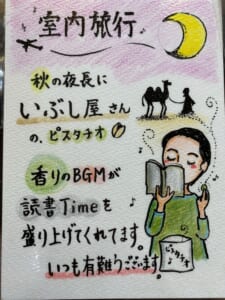 室内旅行♪
秋の夜長に
いぶし屋さん
の、ピスタチオ
香りのBGMが
読書Timeを
盛り上げてくれてます。
いつも有難うございます。
ピスタチオ